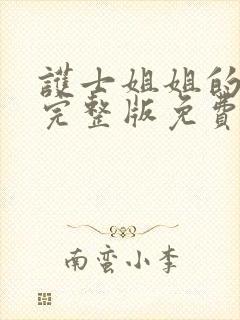 護士姐姐的
完整版免費
南蛮小李